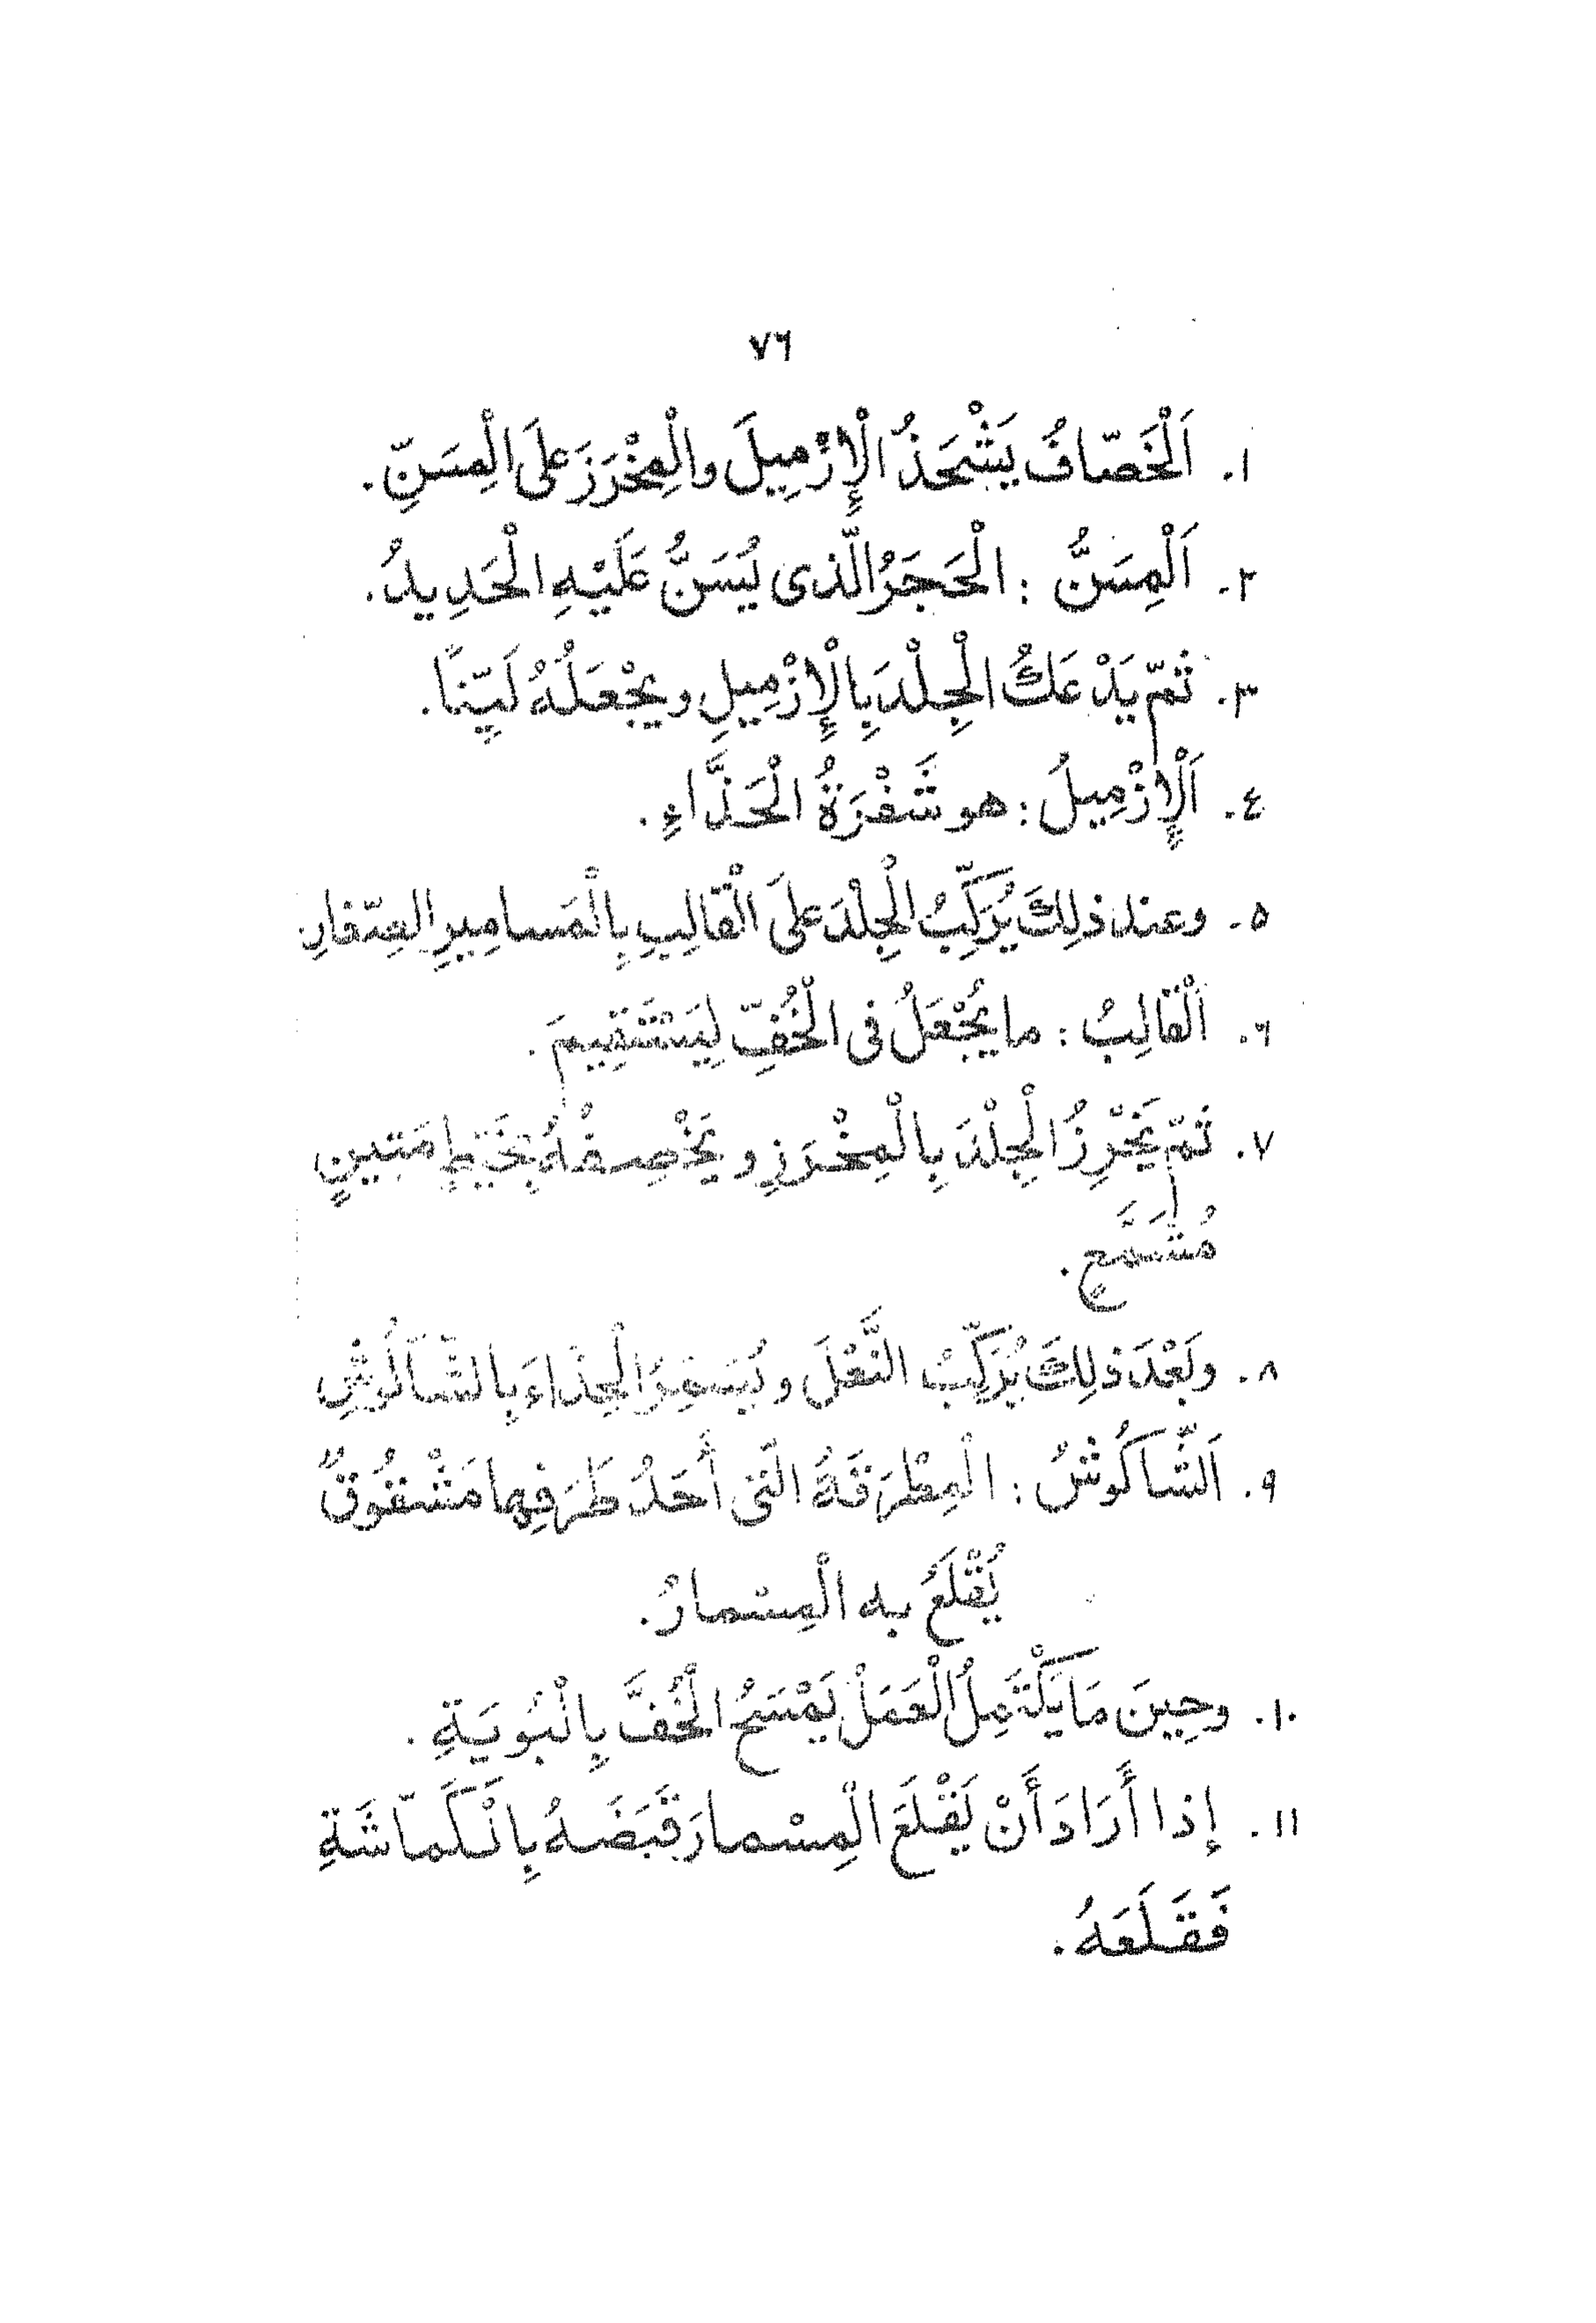 ٧٦
١. اَلْخَصّافُ يَشْحَذُ الْإِزْمِيلَ والْمِخْرَزَ عَلَى الْمِسَنِّ.
٢. اَلْمِسَنُّ : الْحَجَرُ الّذى يُسَنُّ عَلَيْهِ الْحَدِيدُ.
٣. ثمّ يَدْعَكُ الْجِلْدَ بِالْإِزْمِيلِ ويَجْعَلُهُ لَيِّنًا.
٤. اَلْإِزْمِيلُ : هو شَفْرَةُ الْحَذَّاءِ.
٥. وعند ذلِكَ يُرَكِّبُ الْجِلْدَ عَلَى الْقالِبِ بِالْمَسامِيرِ الصِّغارِ.
٦. اَلْقالِبُ : ما يُجْعَلُ فى الْخُفِّ لِيَسْتَقِيمَ.
٧. ثمّ يَخْرِزُ الْجِلْدَ بِالْمِخْرَزِ و يَخْصِفُهُ بِخَيْطٍ مَتِينٍ
مُشَمَّعٍ.
٨. وبَعْدَ ذلِكَ يُرَكِّبُ النَّعْلَ و يُسَمِّرُ الْحِذَاءَ بِالشَّاكُوشِ
٩. اَلشّاكُوشُ : الْمِطْرَقَةُ الّتى أَحَدُ طَرَفِها مَشْقُوقٌ
يُقْلَعُ به الْمِسْمارُ.
١٠. وحِينَ مَا يَكْتَمِلُ الْعَمَلُ يَمْسَحُ الْخُفَّ بِالْبُويَةِ.
١١. إذا أَرَادَ أَنْ يَقْلَعَ الْمِسْمارَ قَبَضَهُ بِالْكَمّاشَةِ
فَقَلَعَهُ.